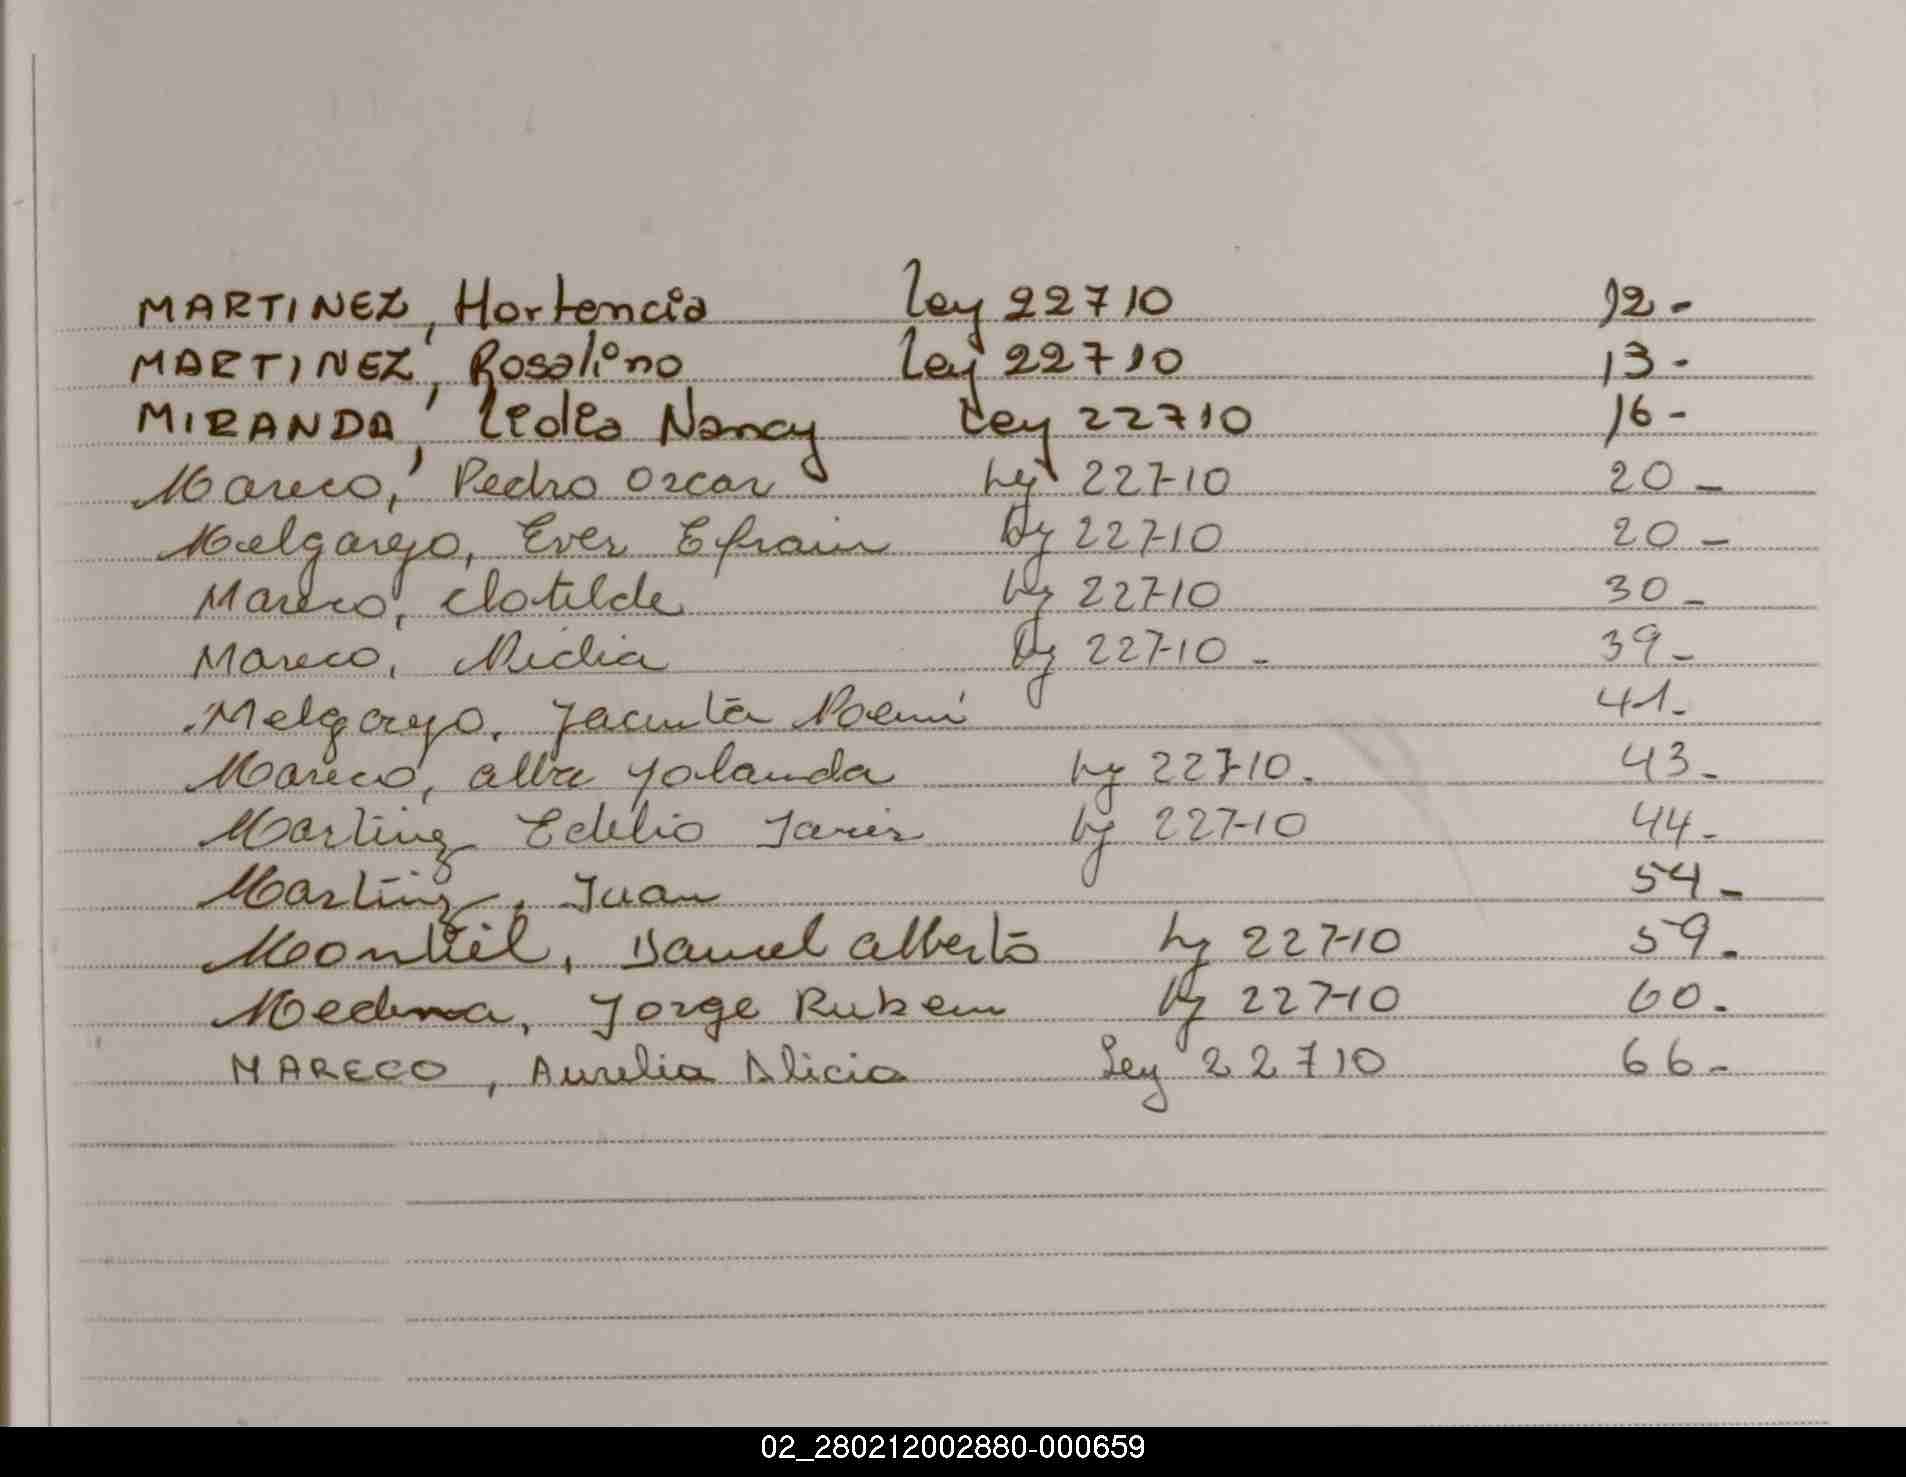 MARTINEZ, Hortencia Ley 22710 12-
MARTINEZ, Rosalino Ley 22710 13-
MIRANDA, Lidia Nancy Ley 22710 16-
Mareco, Pedro Oscar Ley 22710 20-
Melgarejo, Ever Efrain Ley 22710 20-
Mareco, Clotilde Ley 22710 30-
Mareco, Nidia Ley 22710- 39-
Melgarejo, Jacinta Noemi 41-
Mareco, Alba Yolanda Ley 22710. 43-
Martinez Edelio Javier Ley 22710 44-
Martinez, Juan 54-
Montiel, Daniel Alberto Ley 22710 59-
Medina, Jorge Ruben Ley 22710 60-
MARECO, Aurelia Alicia Ley 22710 66-
02_280212002880-000659